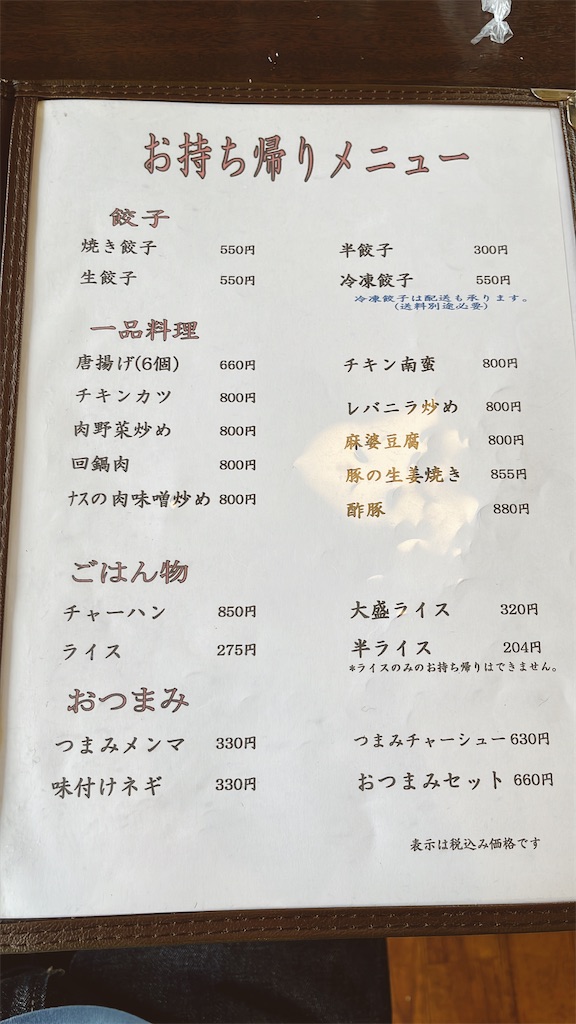 お持ち帰りメニュー
餃子
焼き餃子 550円 半餃子 300円
生餃子 550円 冷凍餃子 550円
冷凍餃子は配送も承ります。
(送料別途必要)
一品料理
唐揚げ(6個) 660円 チキン南蛮 800円
チキンカツ 800円 レバニラ炒め 800円
肉野菜炒め 800円 麻婆豆腐 800円
回鍋肉 800円 豚の生姜焼き 855円
ナスの肉味噌炒め 800円 酢豚 880円
ごはん物
チャーハン 850円 大盛ライス 320円
ライス 275円 半ライス 204円
*ライスのみのお持ち帰りはできません。
おつまみ
つまみメンマ 330円 つまみチャーシュー 630円
味付けネギ 330円 おつまみセット 660円
表示は税込み価格です